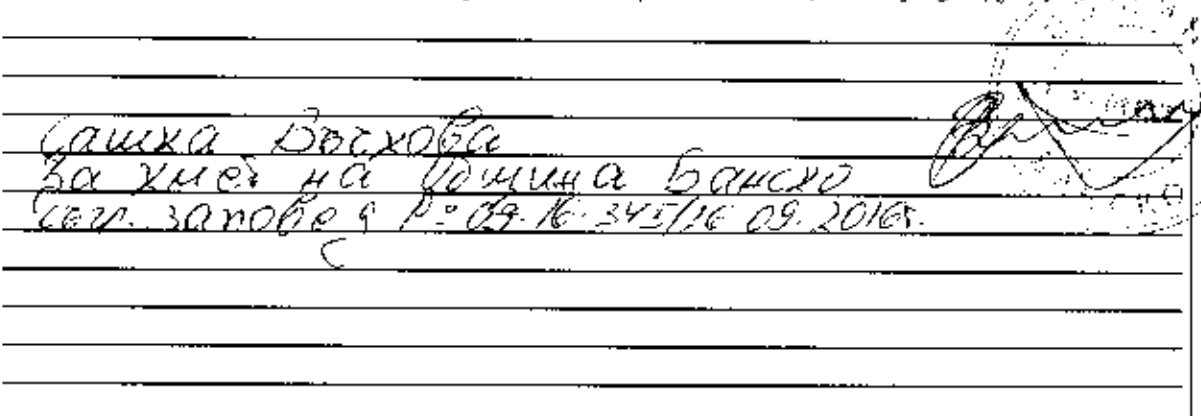 Сашка Вочкова
За кмет на Община Банско
Съгл. заповед № 09-16-345/16.09.2016г.